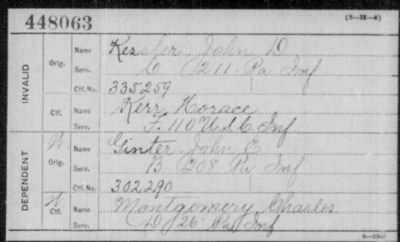 448063 (3-28-4)
INVALID
Orig. Name Kessler, John D
Serv. 211 Pa Inf
Ctf. No. 335259
Ctf. Name Kerr Horace
Serv. F. 110 U.S.C. Inf
DEPENDENT
W Orig. Name Ginter John E
Serv. B 208 Pa Inf
Ctf. No. 302290
W Ctf. Name Montgomery Charles
Serv. D 26 Inf